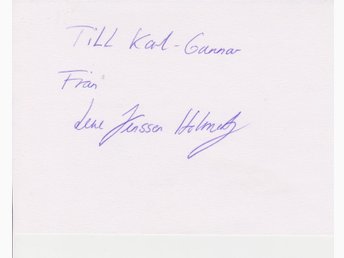 Till Karl-Gunnar
Från
Lene Jenssen